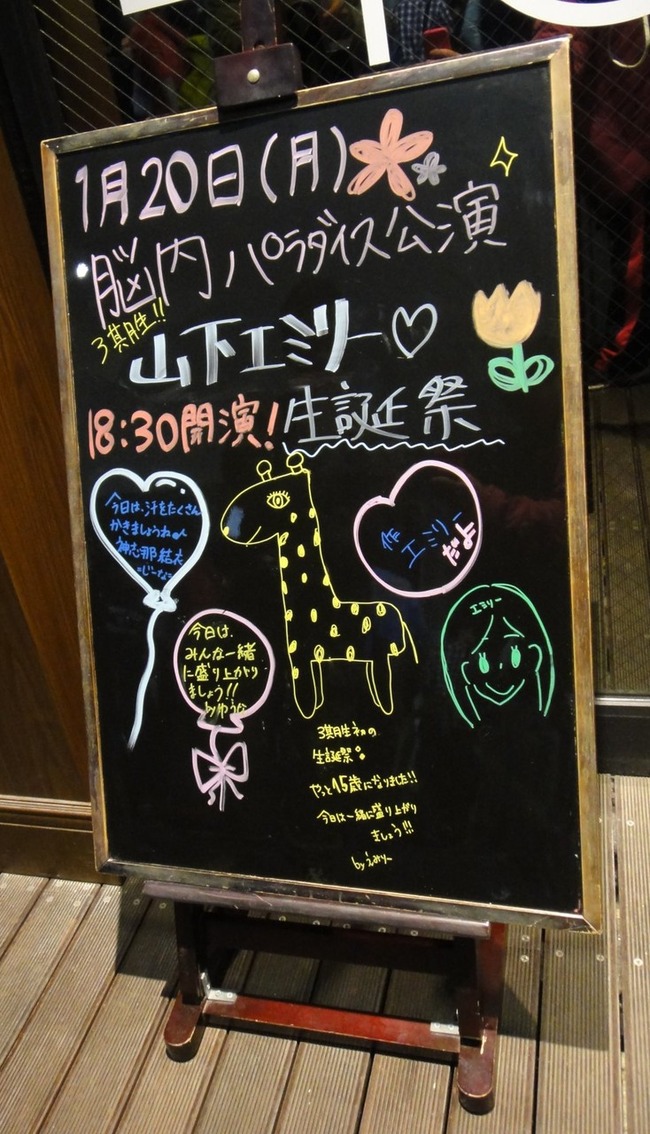 1月20日(月)
脳内パラダイス公演
3期生!!
山下エミリー♡
18:30開演!生誕祭
今日は、汗をたくさん
かきましょうね
神志那結衣
じーな
作
エミリー
だよ
今日は、
みんな一緒
に盛り上がり
ましょう!!
byゆうな
エミリー
3期生初の
生誕祭
やっと15歳になりました!!
今日は一緒に盛り上がり
ましょう!!!
byえみりー